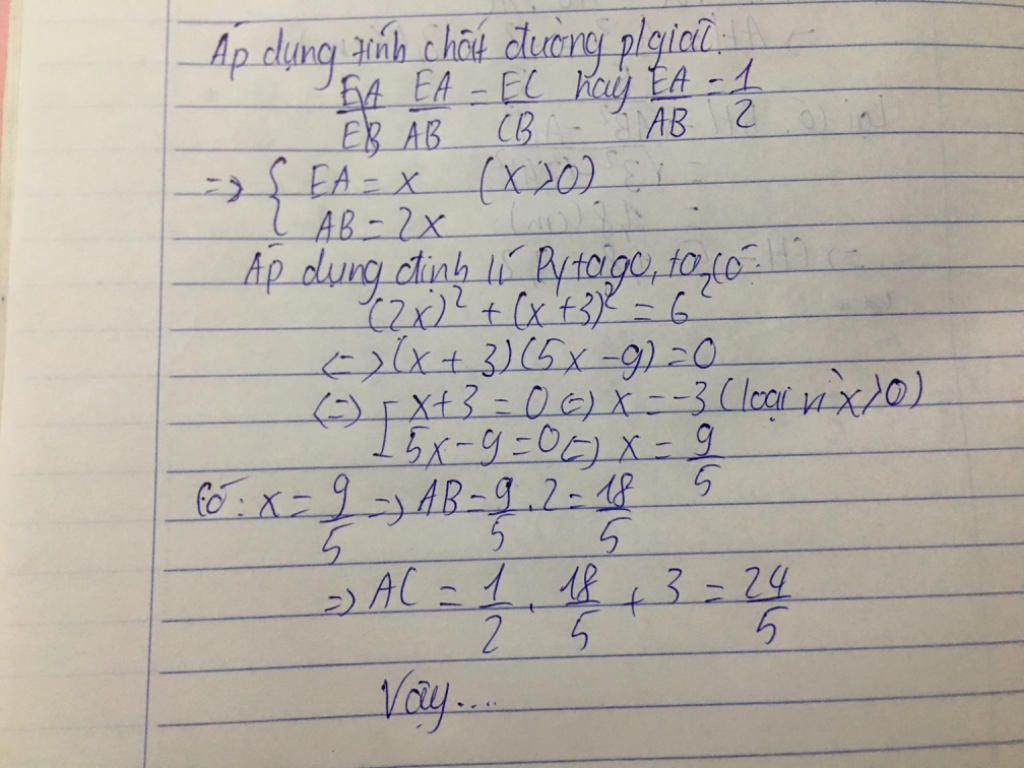 Áp dụng tính chất đường p/giác:
EA/EB EA/AB = EC/CB hay EA/AB = 1/2
=> { EA = x (x>0)
AB = 2x
Áp dụng định lí Pytago, ta có:
(2x)² + (x+3)² = 6²
<=> (x + 3)(5x - 9) = 0
<=> [ x+3 = 0 <=> x = -3 (loại vì x>0)
5x - 9 = 0 <=> x = 9/5
Có: x = 9/5 => AB = 9/5 . 2 = 18/5
=> AC = 1/2 . 18/5 + 3 = 24/5
Vậy....